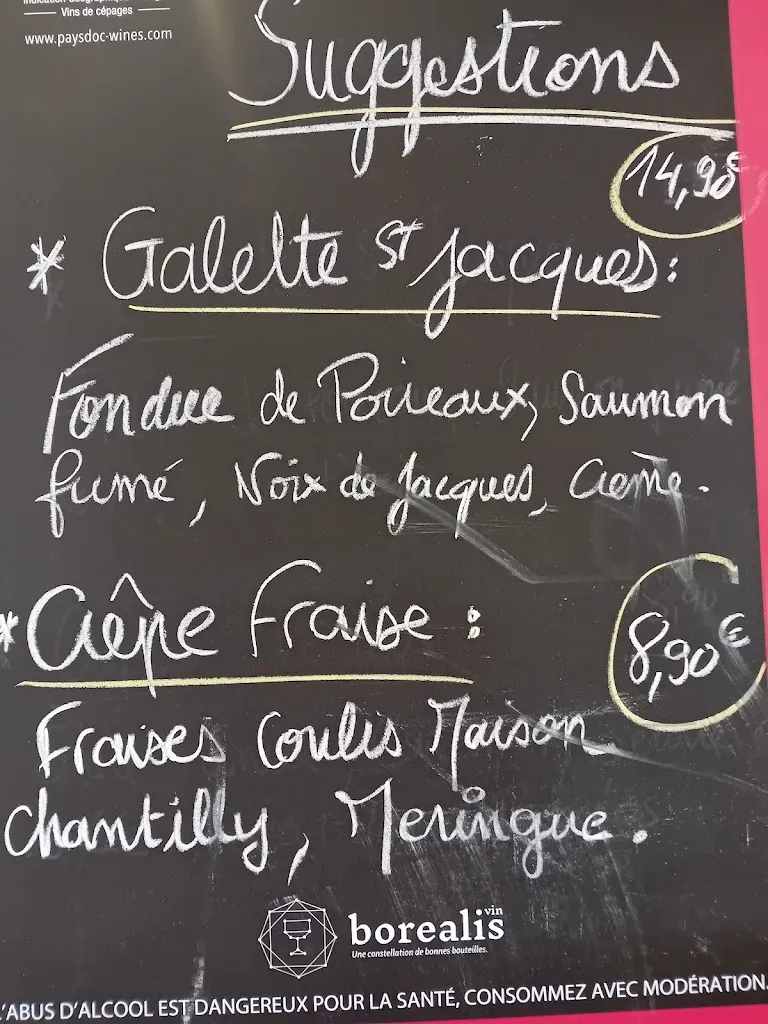 Vins de cépages
www.paysdoc-wines.com
Suggestions
14,90€
* Galette St Jacques:
Fondue de Poireaux, Saumon
fumé, Noix de Jacques, Crème.
* Crêpe Fraise :
8,90€
Fraises Coulis Maison
Chantilly, Meringue.
vin
borealis
Une constellation de bonnes bouteilles.
L'ABUS D'ALCOOL EST DANGEREUX POUR LA SANTÉ, CONSOMMEZ AVEC MODÉRATION.